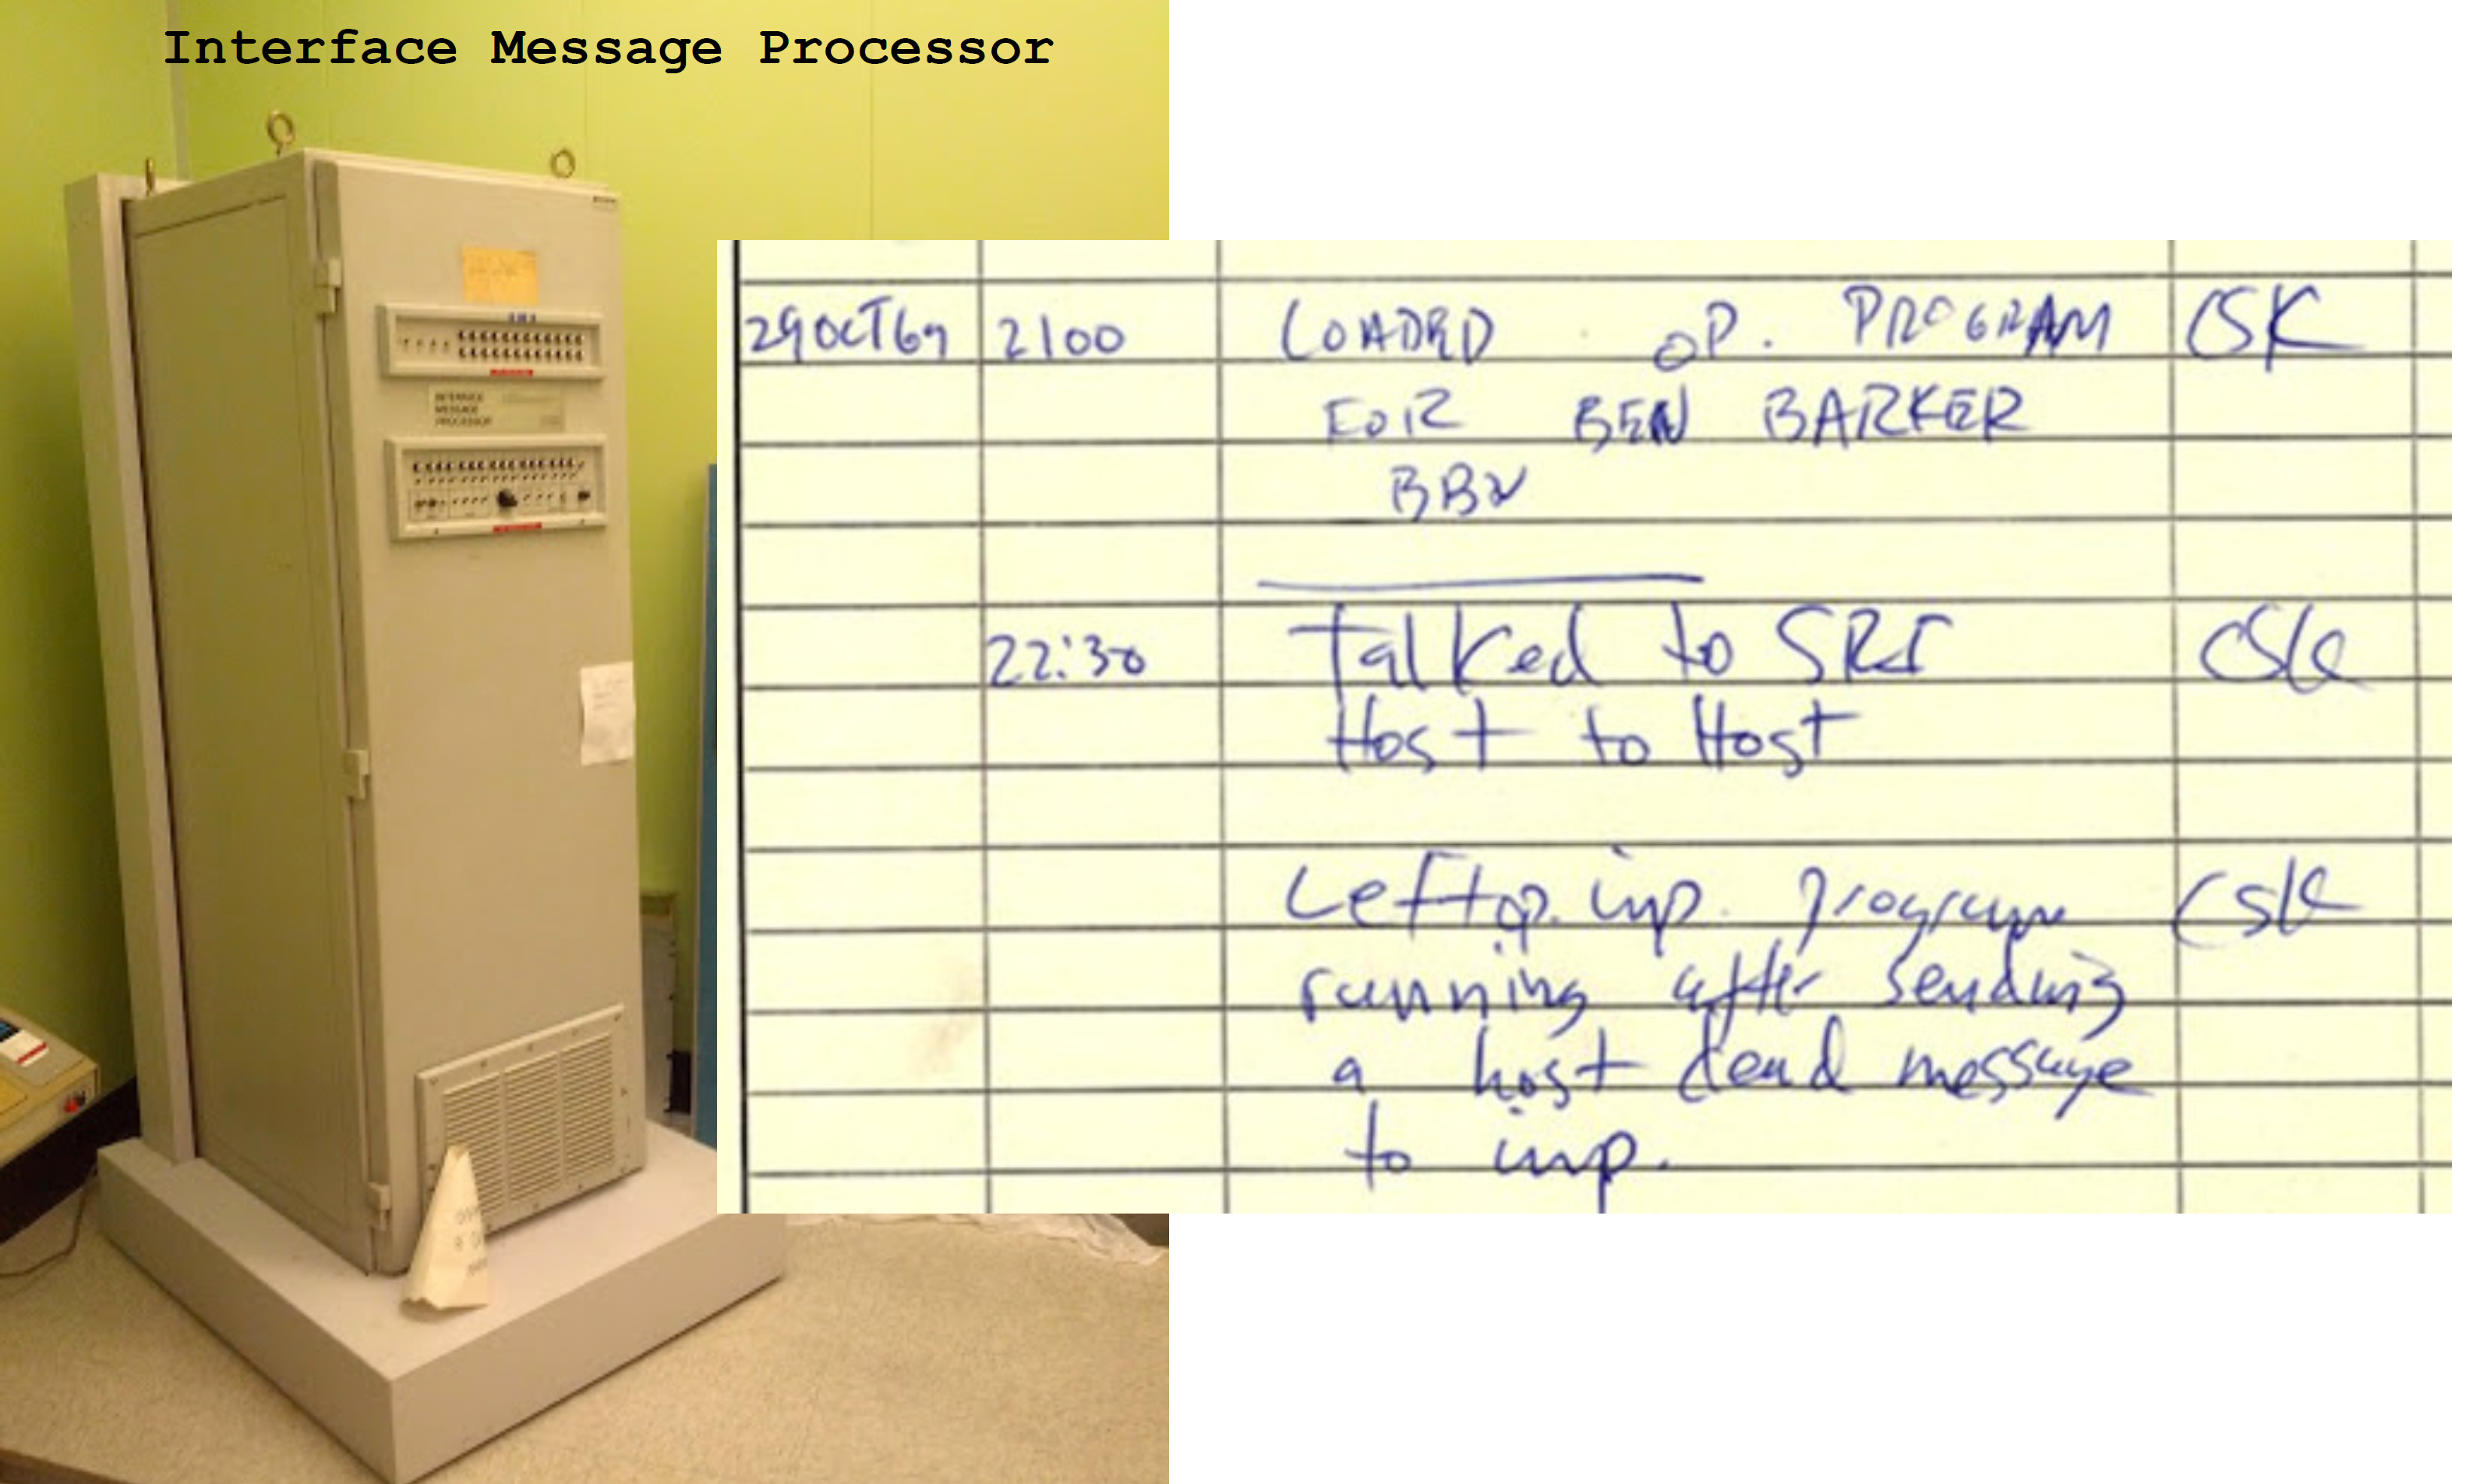 Interface Message Processor
INTERFACE
MESSAGE
PROCESSOR
29OCT69 2100 LOADED OP. PROGRAM CSK
FOR BEN BARKER
BBN
22:30 Talked to SRI CSK
Host to Host
Left op. imp. program CSK
running after sending
a host dead message
to imp.